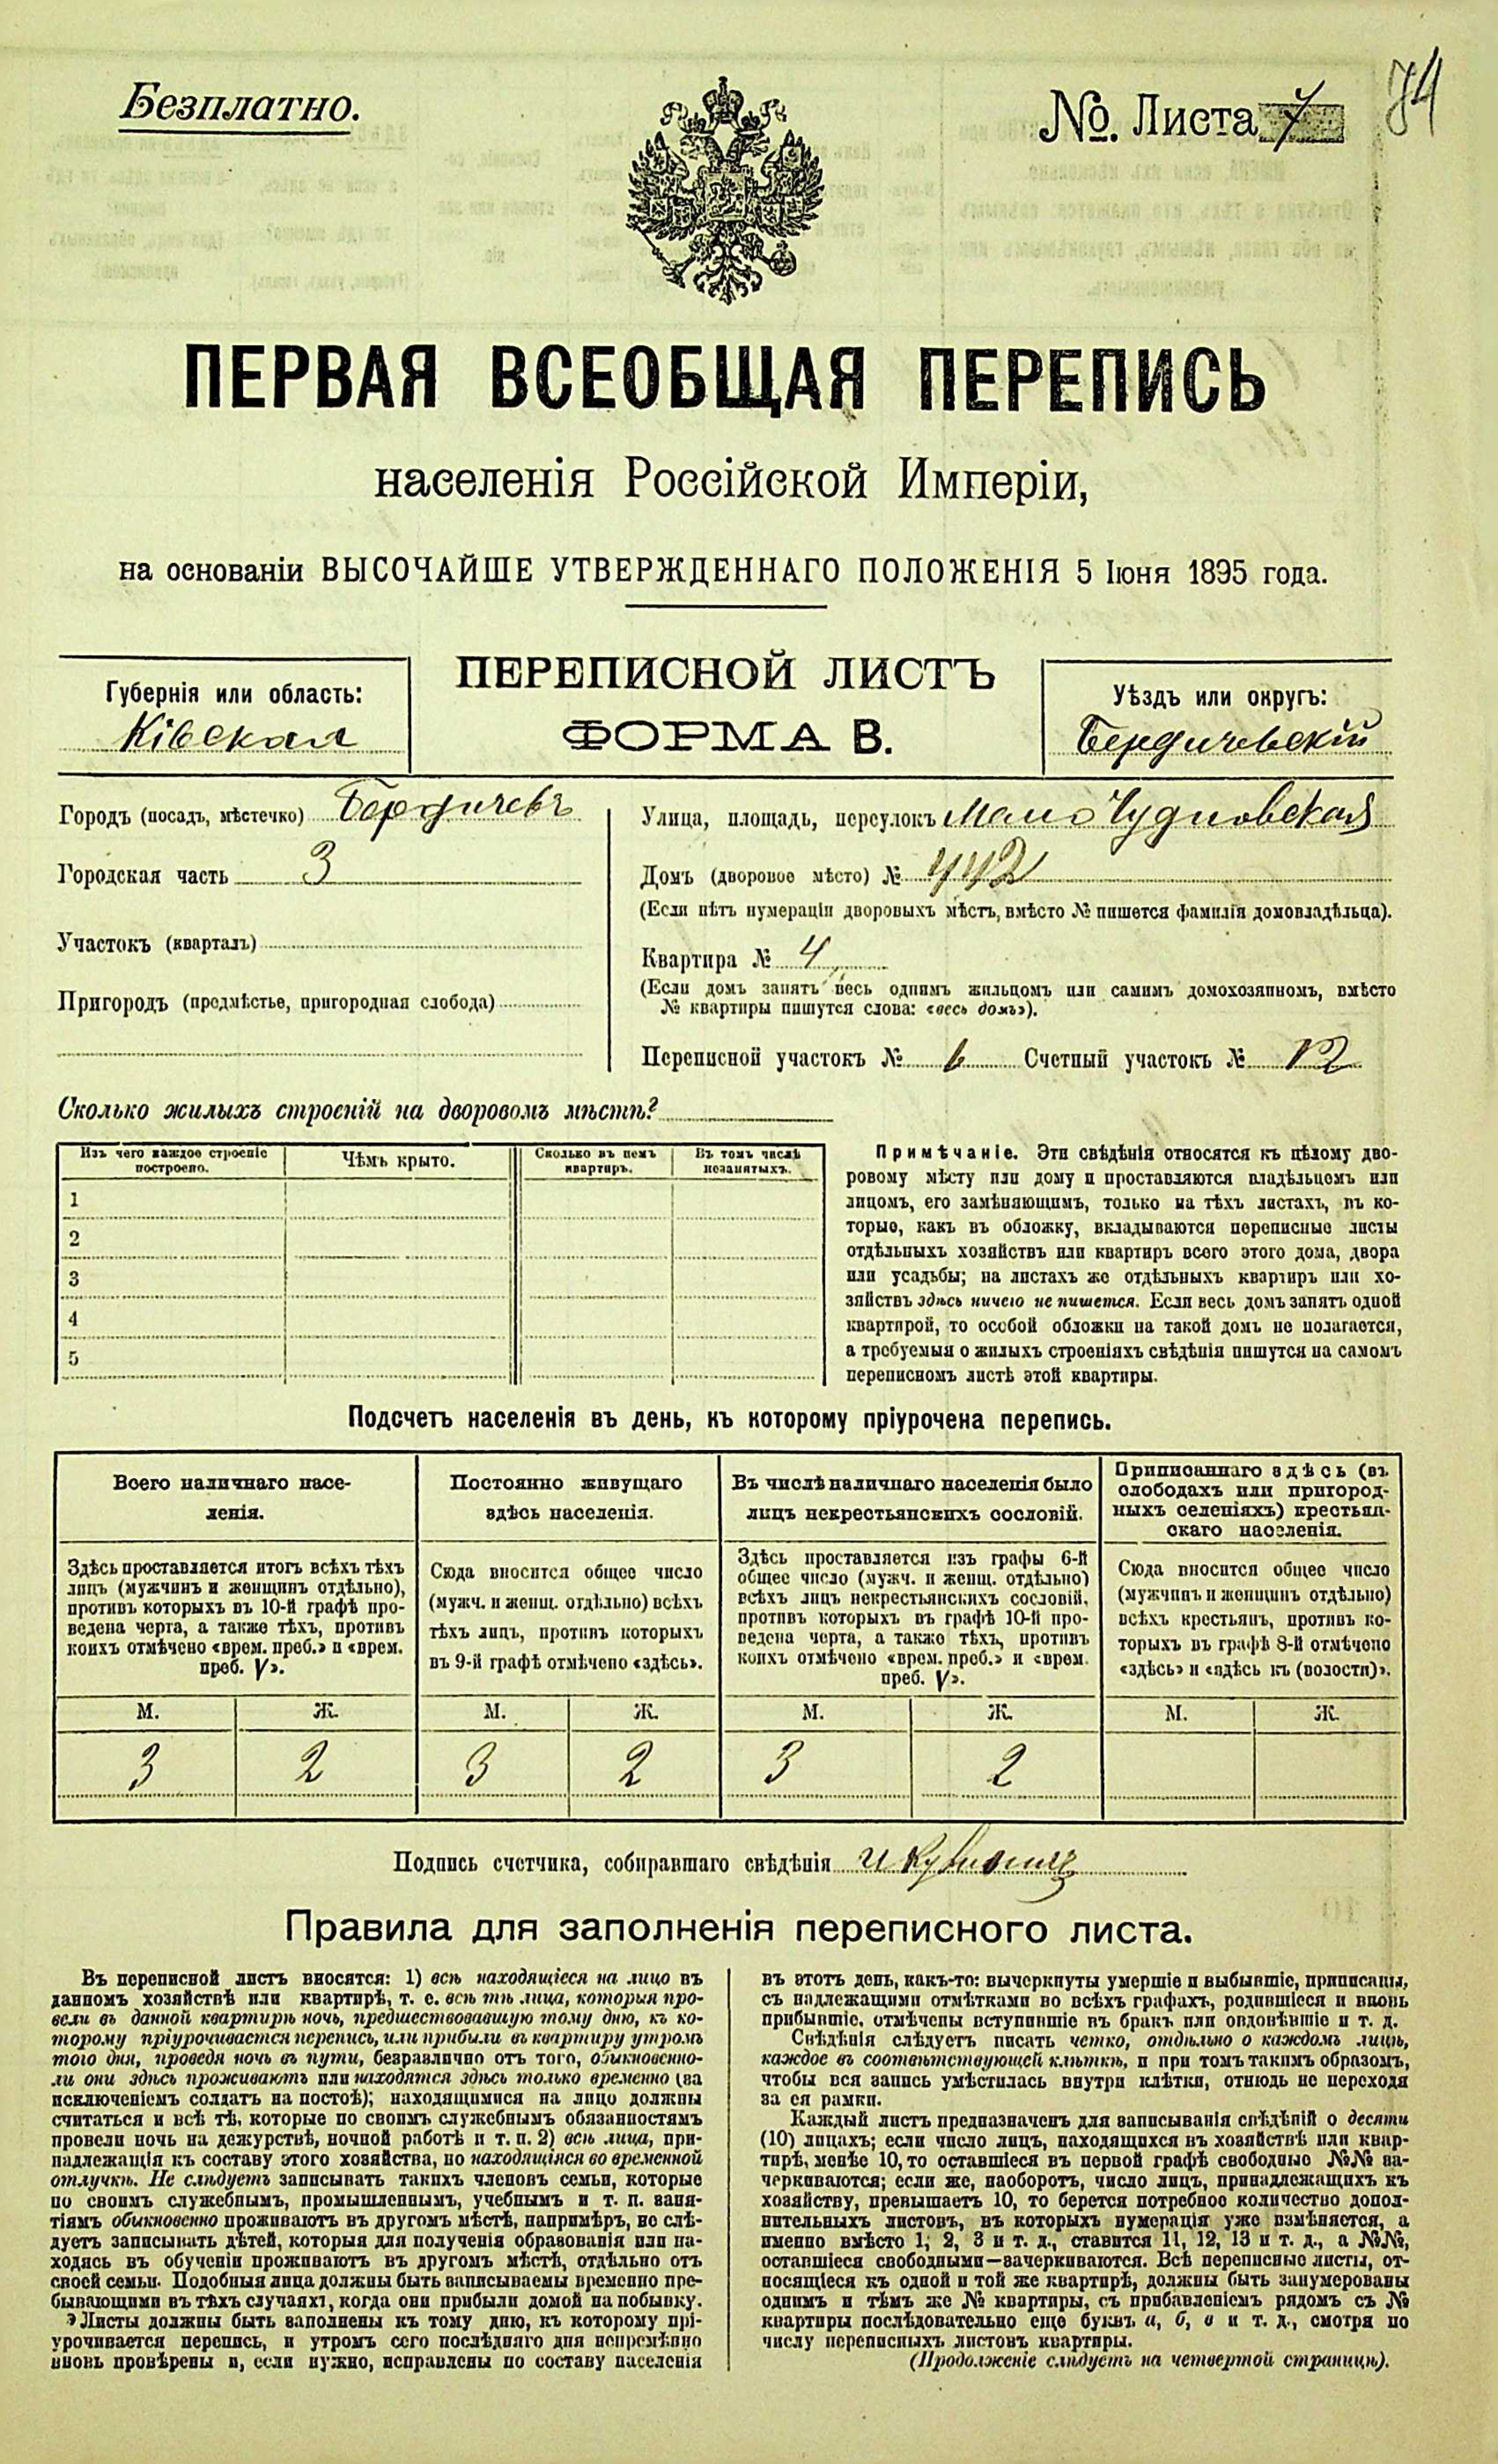 Безплатно.
№. Листа 7
74
ПЕРВАЯ ВСЕОБЩАЯ ПЕРЕПИСЬ
населенія Россійской Имперіи,
на основаніи ВЫСОЧАЙШЕ УТВЕРЖДЕННАГО ПОЛОЖЕНІЯ 5 Іюня 1895 года.
ПЕРЕПИСНОЙ ЛИСТЪ
ФОРМА В.
Губернія или область:
Кіевская
Уѣздъ или округъ:
Бердичевскій
Городъ (посадъ, мѣстечко) Бердичевъ
Городская часть 3
Участокъ (кварталъ)
Пригородъ (предмѣстье, пригородная слобода)
Улица, площадь, переулокъ Мало Чудновская
Домъ (дворовое мѣсто) № 442
(Если нѣтъ нумераціи дворовыхъ мѣстъ, вмѣсто № пишется фамилія домовладѣльца).
Квартира № 4
(Если домъ занятъ весь однимъ жильцомъ или самимъ домохозяиномъ, вмѣсто
№ квартиры пишутся слова: «весь домъ»).
Переписной участокъ № 6 Счетный участокъ № 12
Сколько жилыхъ строеній на дворовомъ мѣстѣ?
Изъ чего каждое строеніе
построено.
Чѣмъ крыто.
Сколько въ немъ
квартиръ.
Въ томъ числѣ
незанятыхъ.
1
2
3
4
5
Примѣчаніе. Эти свѣдѣнія относятся къ цѣлому дво-
ровому мѣсту или дому и проставляются владѣльцемъ или
лицомъ, его замѣняющимъ, только на тѣхъ листахъ, въ ко-
торые, какъ въ обложку, вкладываются переписные листы
отдѣльныхъ хозяйствъ или квартиръ всего этого дома, двора
или усадьбы; на листахъ же отдѣльныхъ квартиръ или хо-
зяйствъ здѣсь ничего не пишется. Если весь домъ занятъ одной
квартирой, то особой обложки на такой домъ не полагается,
а требуемыя о жилыхъ строеніяхъ свѣдѣнія пишутся на самомъ
переписномъ листѣ этой квартиры.
Подсчетъ населенія въ день, къ которому пріурочена перепись.
Всего наличнаго насе-
ленія.
Постоянно живущаго
здѣсь населенія.
Въ числѣ наличнаго населенія было
лицъ некрестьянскихъ сословій.
Приписаннаго здѣсь (въ
слободахъ или пригород-
ныхъ селеніяхъ) крестьян-
скаго населенія.
Здѣсь проставляется итогъ всѣхъ тѣхъ
лицъ (мужчинъ и женщинъ отдѣльно),
противъ которыхъ въ 10-й графѣ про-
ведена черта, а также тѣхъ, противъ
коихъ отмѣчено «врем. преб.» и «врем.
преб. V».
Сюда вносится общее число
(мужч. и женщ. отдѣльно) всѣхъ
тѣхъ лицъ, противъ которыхъ
въ 9-й графѣ отмѣчено «здѣсь».
Здѣсь проставляется изъ графы 6-й
общее число (мужч. и женщ. отдѣльно)
всѣхъ лицъ некрестьянскихъ сословій,
противъ которыхъ въ графѣ 10-й про-
ведена черта, а также тѣхъ, противъ
коихъ отмѣчено «врем. преб.» и «врем.
преб. V».
Сюда вносится общее число
(мужчинъ и женщинъ отдѣльно)
всѣхъ крестьянъ, противъ ко-
торыхъ въ графѣ 8-й отмѣчено
«здѣсь» и «здѣсь къ (волости)».
М. Ж. М. Ж. М. Ж. М. Ж.
3 2 3 2 3 2
Подпись счетчика, собиравшаго свѣдѣнія
Правила для заполненія переписного листа.
Въ переписной листъ вносятся: 1) всѣ находящіеся на лицо въ
данномъ хозяйствѣ или квартирѣ, т. е. всѣ тѣ лица, которыя про-
вели въ данной квартирѣ ночь, предшествовавшую тому дню, къ ко-
торому пріурочивается перепись, или прибыли въ квартиру утромъ
того дня, проведя ночь въ пути, безразлично отъ того, обыкновенно-
ли они здѣсь проживаютъ или находятся здѣсь только временно (за
исключеніемъ солдатъ на постоѣ); находящимися на лицо должны
считаться и всѣ тѣ, которые по своимъ служебнымъ обязанностямъ
провели ночь на дежурствѣ, ночной работѣ и т. п. 2) всѣ лица, при-
надлежащія къ составу этого хозяйства, но находящіяся во временной
отлучкѣ. Не слѣдуетъ записывать такихъ членовъ семьи, которые
по своимъ служебнымъ, промышленнымъ, учебнымъ и т. п. заня-
тіямъ обыкновенно проживаютъ въ другомъ мѣстѣ, напримѣръ, не слѣ-
дуетъ записывать дѣтей, которыя для полученія образованія или на-
ходясь въ обученіи проживаютъ въ другомъ мѣстѣ, отдѣльно отъ
своей семьи. Подобныя лица должны быть записываемы временно пре-
бывающими въ тѣхъ случаяхъ, когда они прибыли домой на побывку.
Листы должны быть заполнены къ тому дню, къ которому прі-
урочивается перепись, и утромъ сего послѣдняго дня непремѣнно
вновь провѣрены и, если нужно, исправлены по составу населенія
въ этотъ день, какъ-то: вычеркнуты умершіе и выбывшіе, приписаны,
съ надлежащими отмѣтками во всѣхъ графахъ, родившіеся и вновь
прибывшіе, отмѣчены вступившіе въ бракъ или овдовѣвшіе и т. д.
Свѣдѣнія слѣдуетъ писать четко, отдѣльно о каждомъ лицѣ,
каждое въ соотвѣтствующей клѣткѣ, и при томъ такимъ образомъ,
чтобы вся запись умѣстилась внутри клѣтки, отнюдь не переходя
за ея рамки.
Каждый листъ предназначенъ для записыванія свѣдѣній о десяти
(10) лицахъ; если число лицъ, находящихся въ хозяйствѣ или квар-
тирѣ, менѣе 10, то оставшіеся въ первой графѣ свободные №№ за-
черкиваются; если же, наоборотъ, число лицъ, принадлежащихъ къ
хозяйству, превышаетъ 10, то берется потребное количество допол-
нительныхъ листовъ, въ которыхъ нумерація уже измѣняется, а
именно вмѣсто 1, 2, 3 и т. д., ставится 11, 12, 13 и т. д., а №№,
оставшіеся свободными—зачеркиваются. Всѣ переписные листы, от-
носящіеся къ одной и той же квартирѣ, должны быть занумерованы
однимъ и тѣмъ же № квартиры, съ прибавленіемъ рядомъ съ №
квартиры послѣдовательно еще буквъ а, б, в и т. д., смотря по
числу переписныхъ листовъ квартиры.
(Продолженіе слѣдуетъ на четвертой страницѣ).